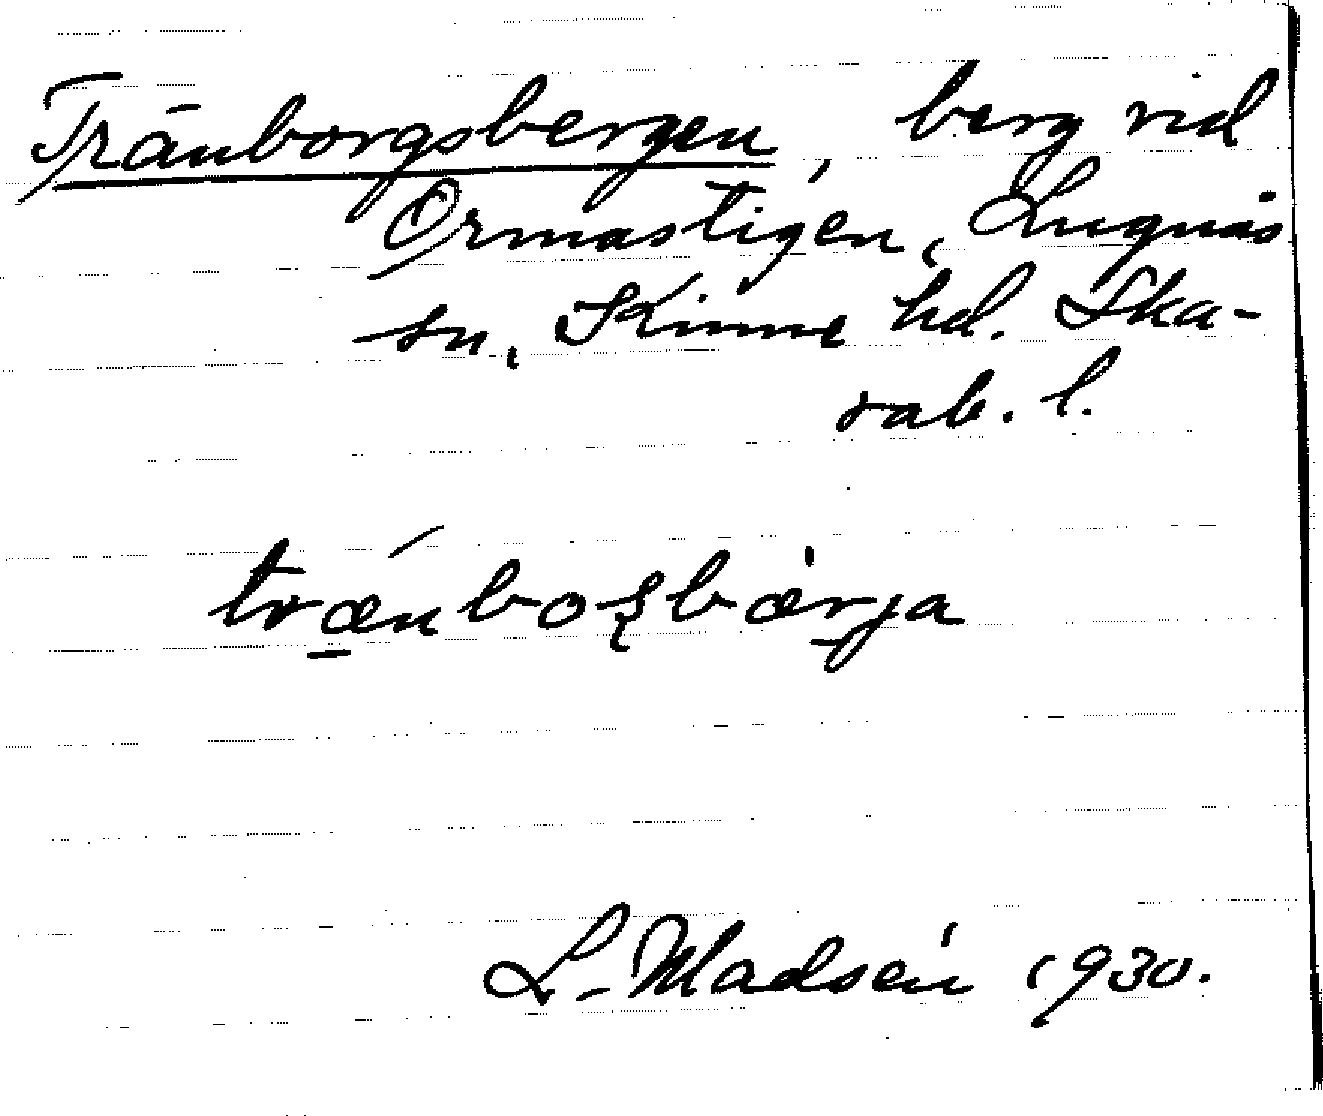 Tränborgsbergen, berg vid
Ormastigen, Lugnås
sn, Kinne hd. Ska-
rab. l.
L. Madsén 1930.